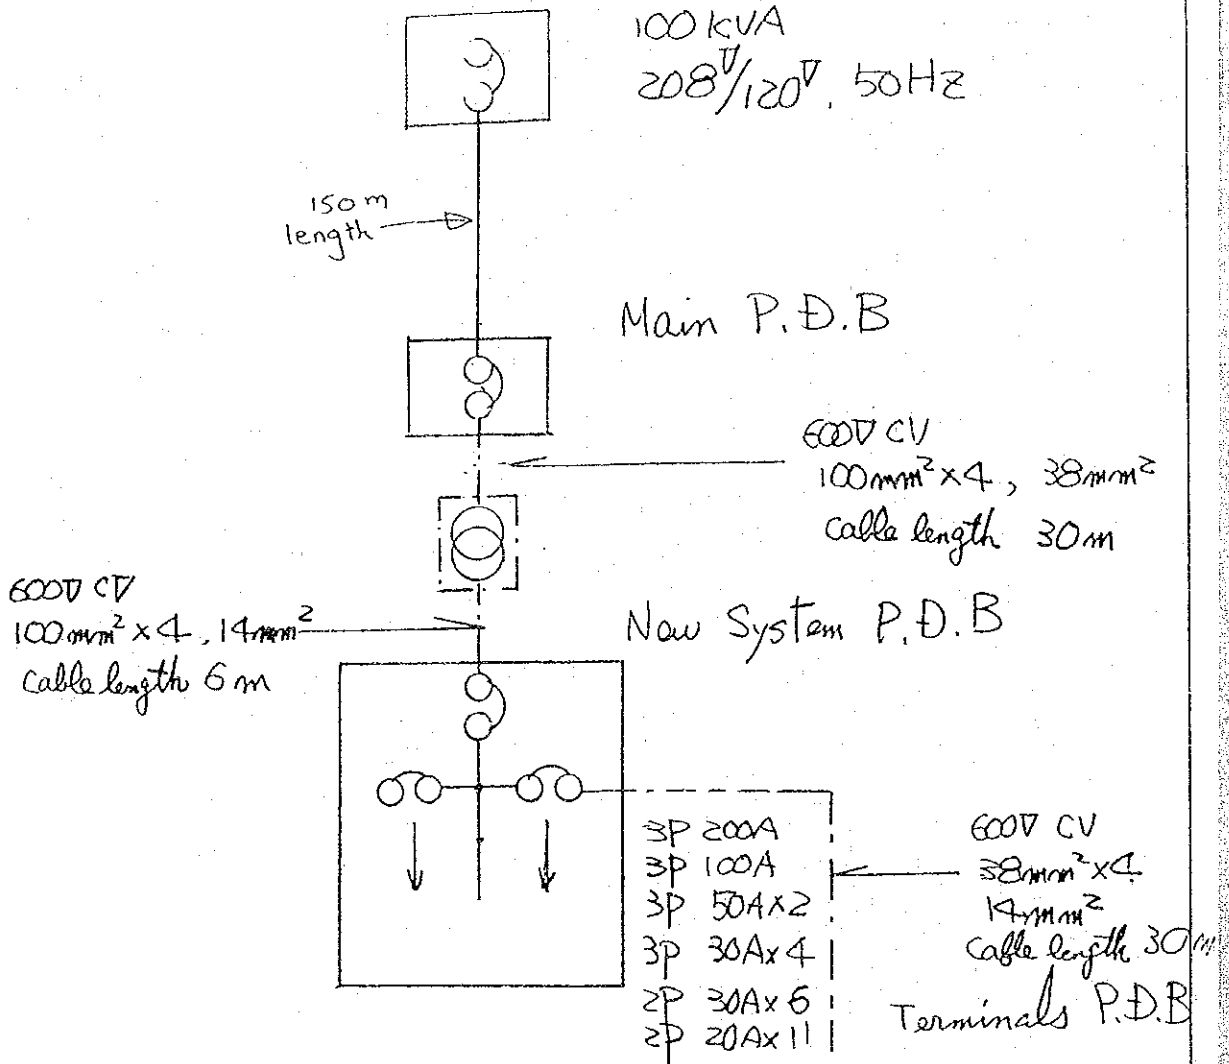 100 KVA
208V/120V. 50Hz
150 m
length
Main P.D.B
600V CV
100mm²×4, 38mm²
Cable length 30m
600V CV
100mm²×4, 14mm²
Cable length 6m
New System P.D.B
3P 200A
3P 100A
3P 50A×2
3P 30A×4
2P 30A×6
2P 20A×11
600V CV
38mm²×4
14mm²
Cable length 30m
Terminals P.D.B